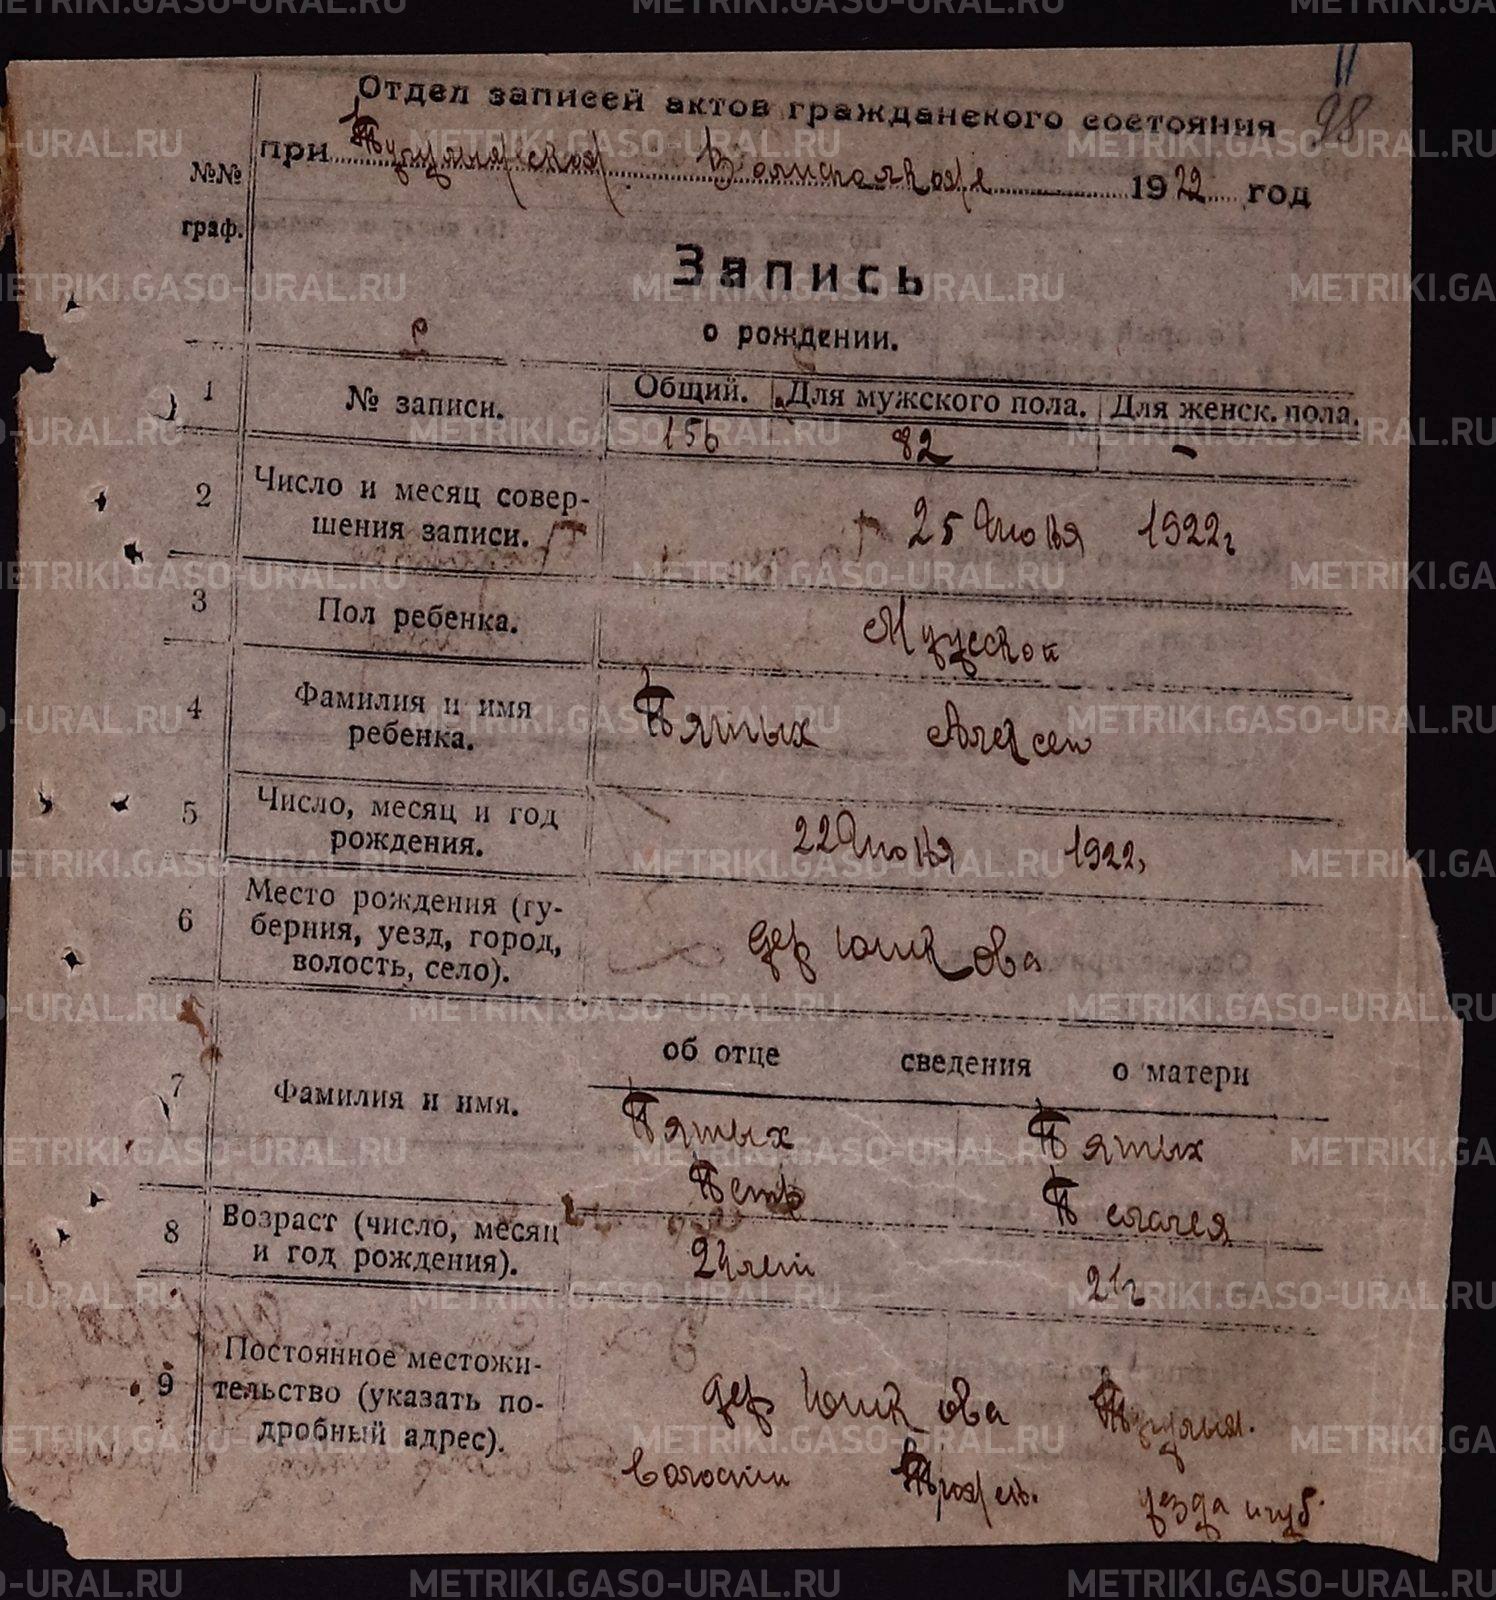 Отдел записей актов гражданского состояния
98
при Тугулымской Волисполкоме 1922 год
№№ граф.
Запись
о рождении.
1 № записи. Общий. Для мужского пола. Для женск. пола.
156 82 -
2 Число и месяц совер-
шения записи. 25 Июня 1922г
3 Пол ребенка. Мужской
4 Фамилия и имя
ребенка. Пятых Алексей
5 Число, месяц и год
рождения. 22 Июня 1922,
6 Место рождения (гу-
берния, уезд, город,
волость, село). дер Юшкова
об отце сведения о матери
7 Фамилия и имя. Пятых Пятых
Петр Пелагея
8 Возраст (число, месяц
и год рождения). 24 лет 21г
9 Постоянное местожи-
тельство (указать по-
дробный адрес). дер Юшкова Тугулым.
Волости уезда и губ.
METRIKI.GASO-URAL.RU